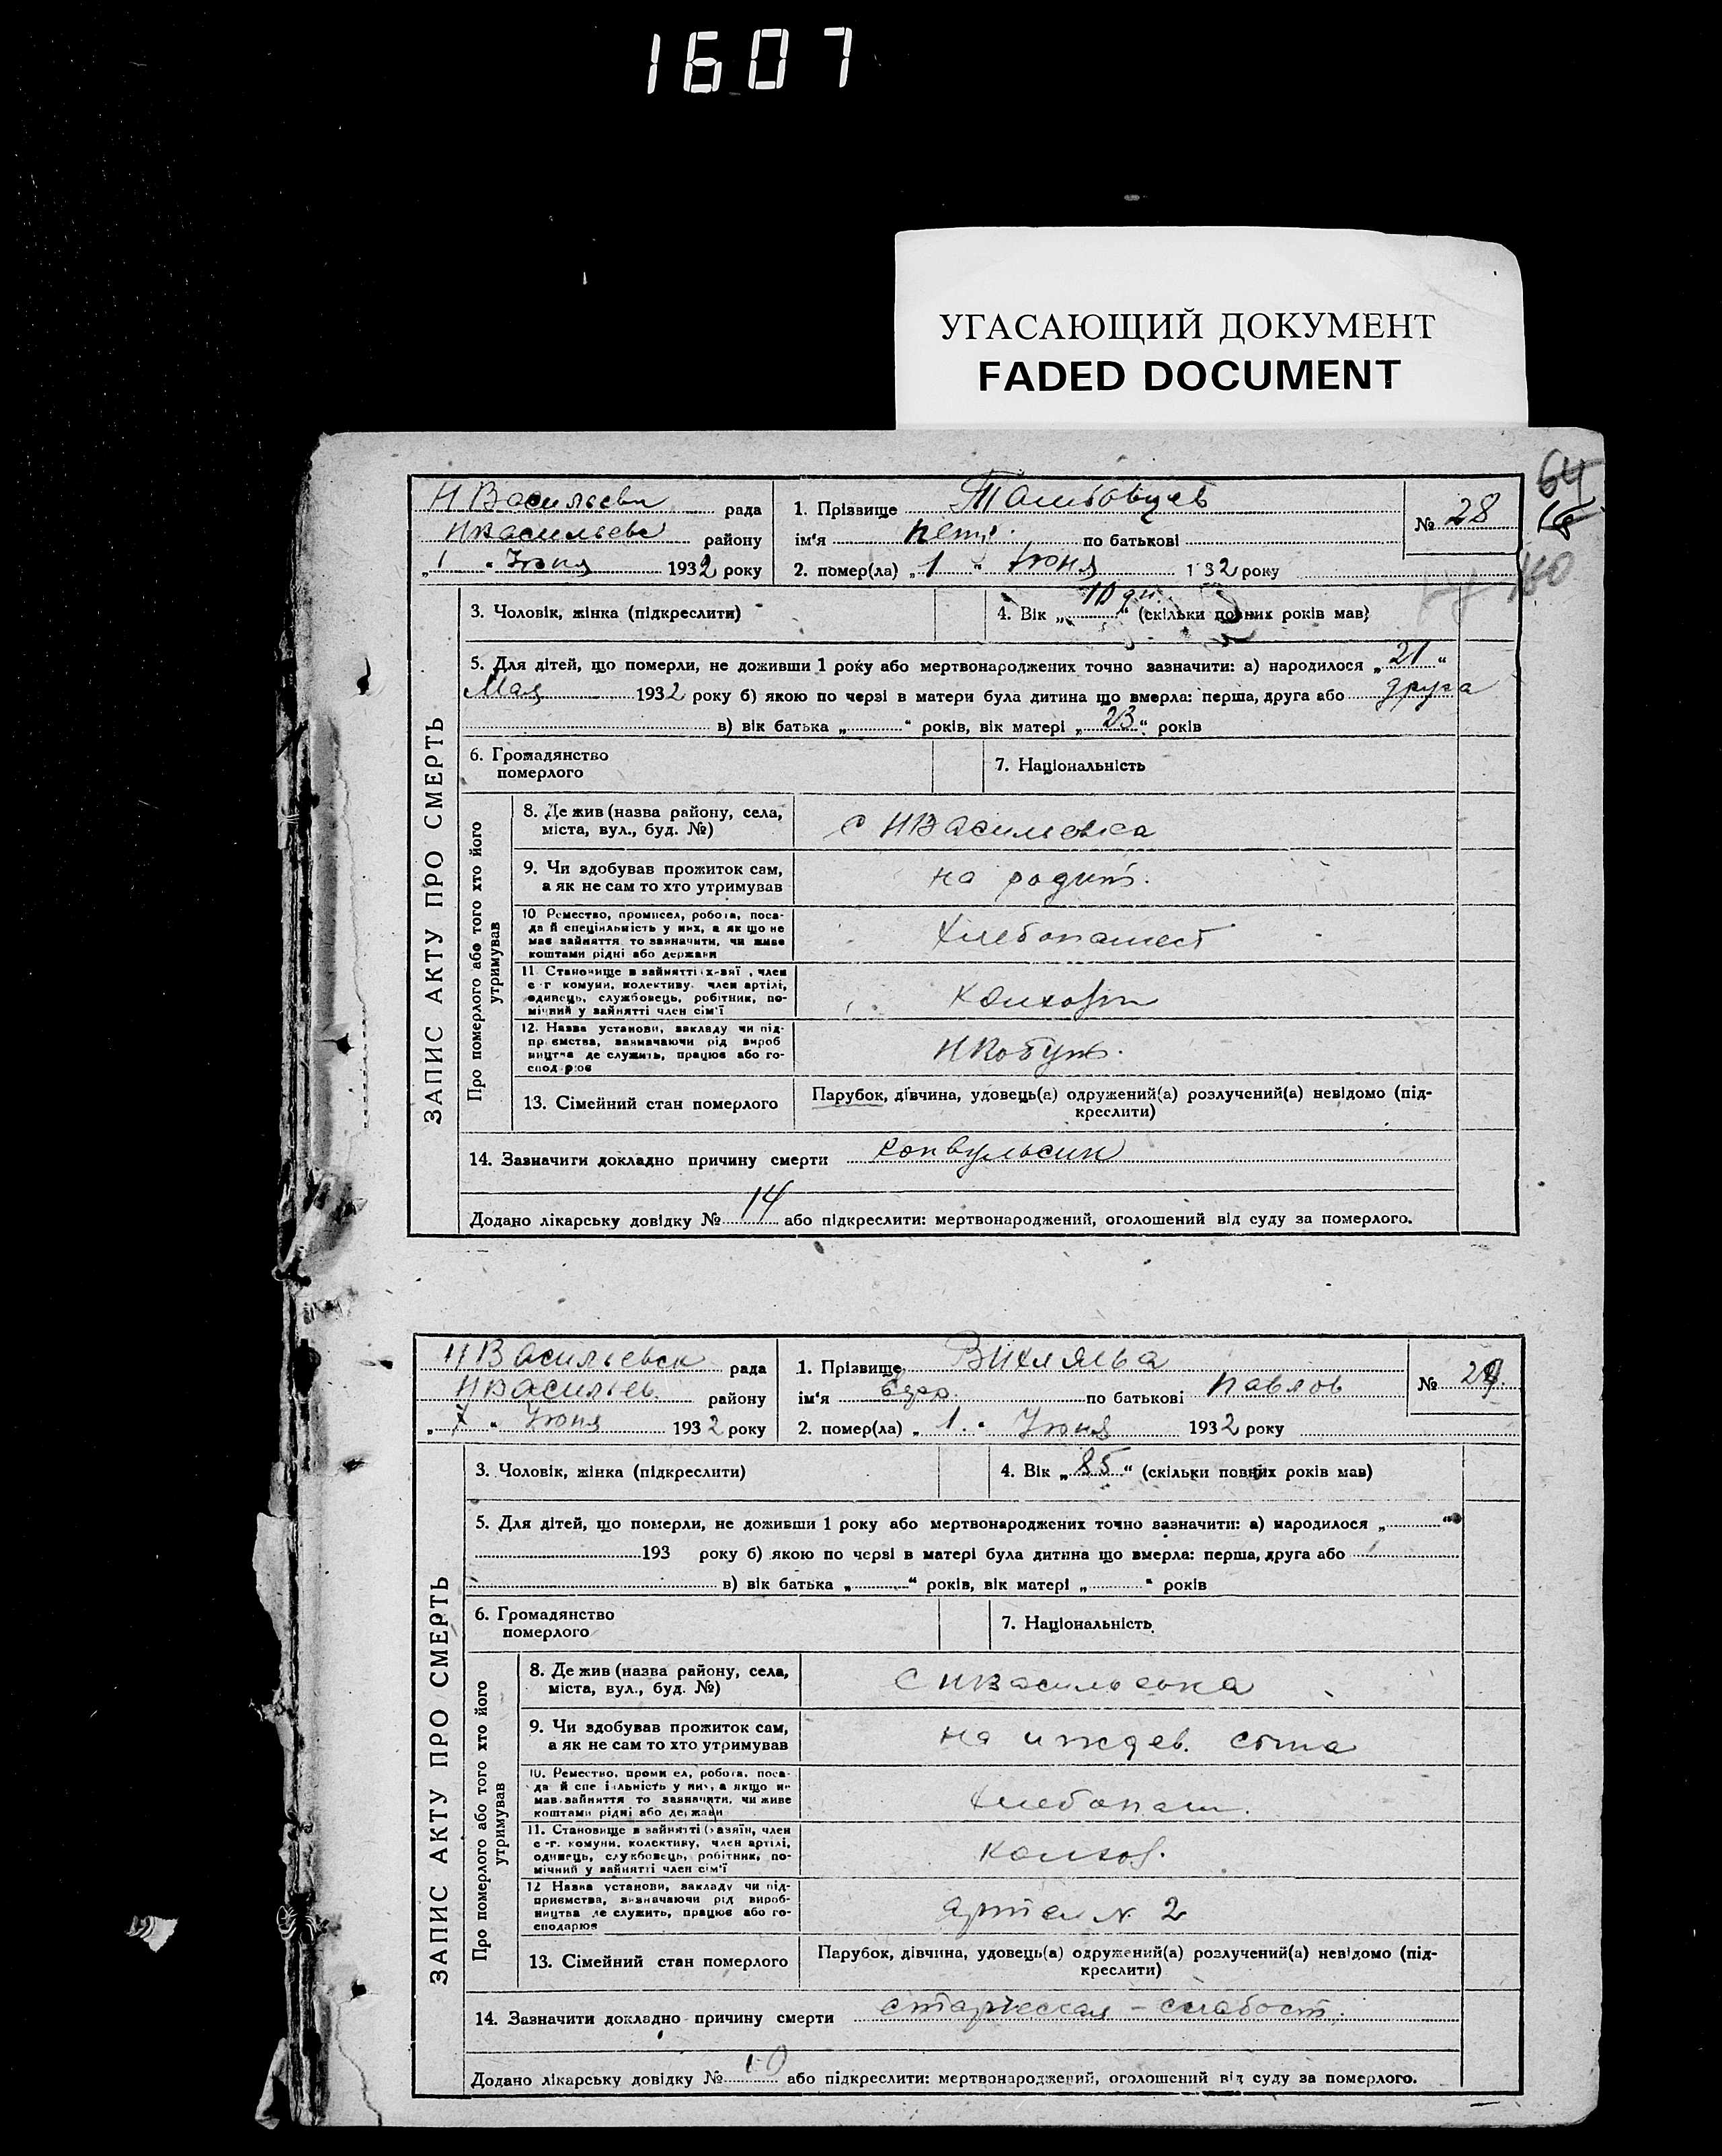 1607
УГАСАЮЩИЙ ДОКУМЕНТ
FADED DOCUMENT
64
Н Васильевк рада
Нвасильевс району
„1“ Июня 1932 року
1. Прізвище Тамбовцев
ім'я петр. по батькові
2. помер(ла) „1“ Июня 1932 року
№ 28
3. Чоловік, жінка (підкреслити)
4. Вік „10 дн.“ (скільки повних років мав)
5. Для дітей, що померли, не доживши 1 року або мертвонароджених точно зазначити: а) народилося „21“
Мая 1932 року б) якою по черзі в матери була дитина що вмерла: перша, друга або друга
в) вік батька „ “ років, вік матері „23“ років
6. Громадянство
померлого
7. Національність
ЗАПИС АКТУ ПРО СМЕРТЬ
Про померлого або того хто його
утримував
8. Де жив (назва району, села,
міста, вул., буд. №)
с НВасильевка
9. Чи здобував прожиток сам,
а як не сам то хто утримував
на родит.
10 Ремество, промисел, робота, поса-
да й спеціяльність у них, а як що не
має зайняття то зазначити, чи живе
коштами рідні або держави
Хлебопашест
11 Становище в зайнятті х-азї , член
с-г комуни, колективу. член артілі,
одинець, службовець, робітник, по-
мічний у зайнятті член сім'ї
Колхозн
12. Назва установи, закладу чи під-
приємства, зазначаючи рід вироб
ництва де служить, працює або го-
сподарює
13. Сімейний стан померлого
Парубок, дівчина, удовець(а) одружений(а) розлучений(а) невідомо (під-
креслити)
14. Зазначити докладно причину смерти конвульсии
Додано лікарську довідку № 14 або підкреслити: мертвонароджений, оголошений від суду за померлого.
Н Васильевск рада
Нвасильев. району
Июня 1932 року
1. Прізвище
ім'я по батькові павлов
2. помер(ла) „1.“ Июня 1932 року
№ 29.
3. Чоловік, жінка (підкреслити)
4. Вік „85“ (скільки повних років мав)
5. Для дітей, що померли, не доживши 1 року або мертвонароджених точно зазначити: а) народилося „ “
193 року б) якою по черзі в матері була дитина що вмерла: перша, друга або
в) вік батька „ “ років, вік матері „ “ років
6. Громадянство
померлого
7. Національність
ЗАПИС АКТУ ПРО СМЕРТЬ
Про померлого або того хто його
утримував
8. Де жив (назва району, села,
міста, вул., буд. №)
С нвасильевка
9. Чи здобував прожиток сам,
а як не сам то хто утримував
на иждев. сына
10. Ремество, промисел, робота, поса-
да й спеціяльність у них, а якщо не
мав зайняття то зазначити, чи живе
коштами рідні або держави
Хлебопаш.
11. Становище в зайнятті (хазяїн, член
с.-г. комуни, колективу, член артілі,
одинець, службовець, робітник, по-
мічний у зайнятті член сім'ї
Колхоз.
12 Назва установи, закладу чи під-
приємства, визначаючи рід вироб-
ництва де служить, працює або го-
сподарює
артел N 2
13. Сімейний стан померлого
Парубок, дівчина, удовець(а) одружений(а) розлучений(а) невідомо (під-
креслити)
14. Зазначити докладно причину смерти старческая - слабост.
Додано лікарську довідку № 10 або підкреслити: мертвонароджений, оголошений від суду за померлого.